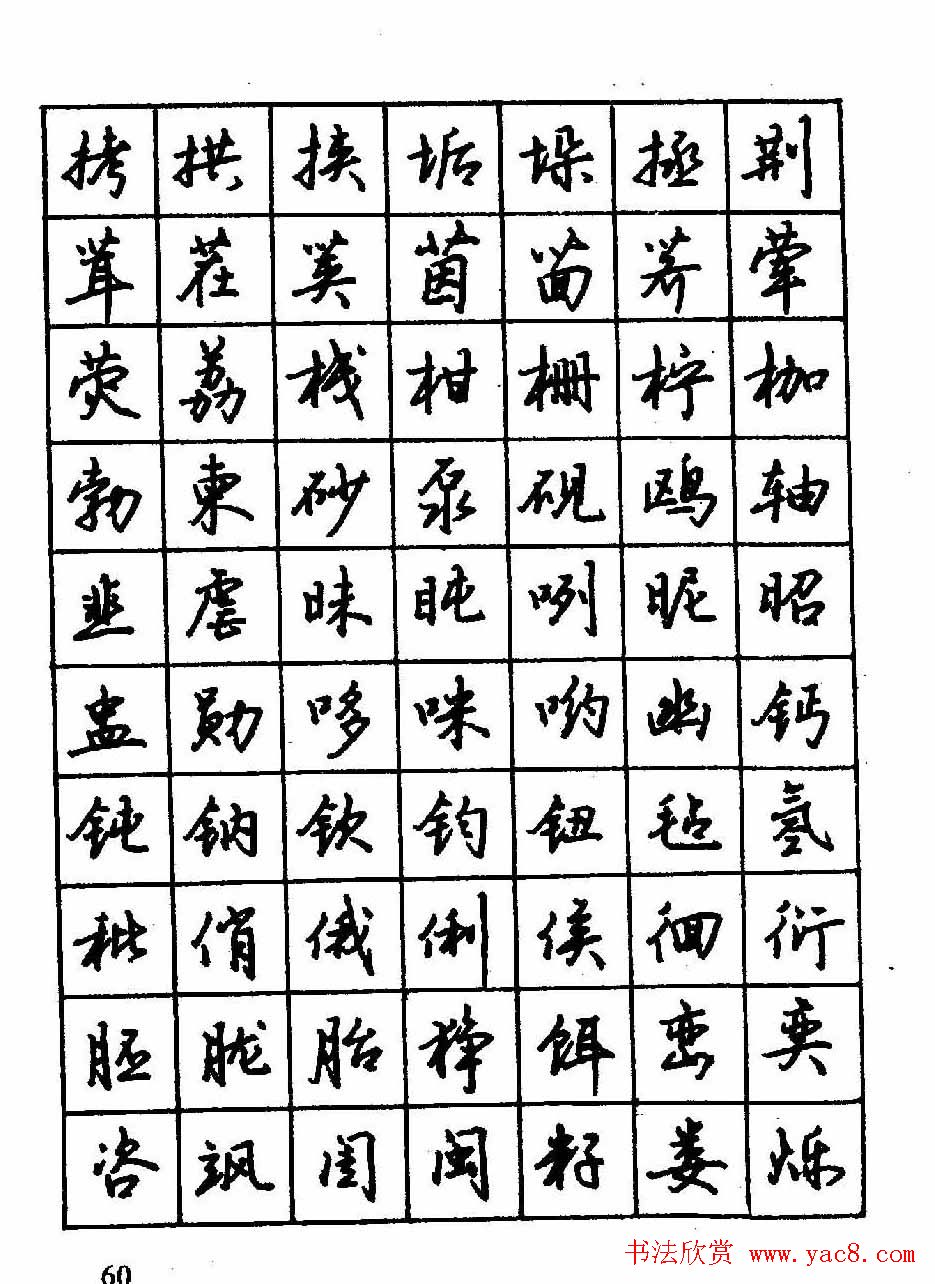 拷拱挟垢垛拯荆
茸茬荚茵茴荞荤
荧荔栈柑栅柠枷
勃柬砂泵砚鸥轴
韭虐昧盹咧昵昭
盅勋哆咪哟幽钙
钝钠钦钧钮毡氢
秕俏俄俐侯徊衍
胚胧胎狰饵峦奕
咨飒闺闽籽娄烁
书法欣赏 www.yac8.com
60